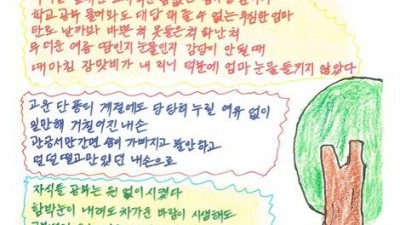 학교 공부 물어와도 대답 해 줄 수 없는 무심한 엄마
탄로 날까와 바쁜 척 못들은척 하난척
무더운 여름 땀인지 눈물인지 감당이 안 될 때
때마침 장맛비가 내려 덕분에 엄마 눈물 들키지 않았다
고운 단풍의 계절에도 당당히 누릴 여유 없이
일만해 거칠어진 내손
관공서만 가면 숨이 가빠지고 불안하고
덜덜 떨고만 있던 내손으로
자식들 공부는 원 없이 시켰다
함박눈이 내려도 차가운 바람이 시샘해도